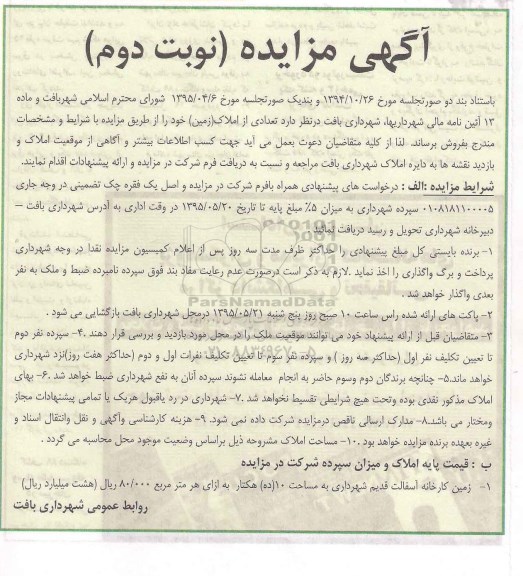 آگهی مزایده (نوبت دوم)
باستناد بند دو صورتجلسه مورخ ۱۳۹۴/۱۰/۲۶ و بندیک صورتجلسه مورخ ۱۳۹۵/۰۴/۶ شورای محترم اسلامی شهربافت و ماده
۱۳ آئین نامه مالی شهرداریها، شهرداری بافت درنظر دارد تعدادی از املاک(زمین) خود را از طریق مزایده با شرایط و مشخصات
مندرج بفروش برساند. لذا از کلیه متقاضیان دعوت بعمل می آید جهت کسب اطلاعات بیشتر و آگاهی از موقعیت املاک و
بازدید نقشه ها به دایره املاک شهرداری بافت مراجعه و نسبت به دریافت فرم شرکت در مزایده و ارائه پیشنهادات اقدام نمایند.
شرایط مزایده :الف : درخواست های پیشنهادی همراه بافرم شرکت در مزایده و اصل یک فقره چک تضمینی در وجه جاری
۰۱۰۸۱۸۱۱۰۰۰۰۵ سپرده شهرداری به میزان ۵٪ مبلغ پایه تا تاریخ ۱۳۹۵/۰۵/۲۰ در وقت اداری به آدرس شهرداری بافت –
دبیرخانه شهرداری تحویل و رسید دریافت نماید
۱- برنده بایستی کل مبلغ پیشنهادی را حداکثر ظرف مدت سه روز پس از اعلام کمیسیون مزایده نقدا در وجه شهرداری
پرداخت و برگ واگذاری را اخذ نماید .لازم به ذکر است درصورت عدم رعایت مفاد بند فوق سپرده نامبرده ضبط و ملک به نفر
بعدی واگذار خواهد شد .
۲- پاکت های ارائه شده راس ساعت ۱۰ صبح روز پنج شنبه ۱۳۹۵/۰۵/۲۱ درمحل شهرداری بافت بازگشایی می شود .
۳- متقاضیان قبل از ارائه پیشنهاد خود می توانند موقعیت ملک را در محل مورد بازدید و بررسی قرار دهند .۴- سپرده نفر دوم
تا تعیین تکلیف نفر اول (حداکثر سه روز ) و سپرده نفر سوم تا تعیین تکلیف نفرات اول و دوم (حداکثر هفت روز)نزد شهرداری
خواهد ماند.۵- چنانچه برندگان دوم وسوم حاضر به انجام معامله نشوند سپرده آنان به نفع شهرداری ضبط خواهد شد .۶- بهای
املاک مذکور نقدی بوده وتحت هیچ شرایطی تقسیط نخواهد شد .۷- شهرداری در رد یاقبول هریک یا تمامی پیشنهادات مجاز
ومختار می باشد.۸- مدارک ارسالی ناقص درمزایده شرکت داده نمی شود. ۹- هزینه کارشناسی وآگهی و نقل وانتقال اسناد و
غیره بعهده برنده مزایده خواهد بود .۱۰- مساحت املاک مشروحه ذیل براساس وضعیت موجود محل محاسبه می گردد .
ب : قیمت پایه املاک و میزان سپرده شرکت در مزایده
۱- زمین کارخانه آسفالت قدیم شهرداری به مساحت ۱۰(ده) هکتار به ازای هر متر مربع ۸۰/۰۰۰ ریال (هشت میلیارد ریال)
روابط عمومی شهرداری بافت
ParsNamadData